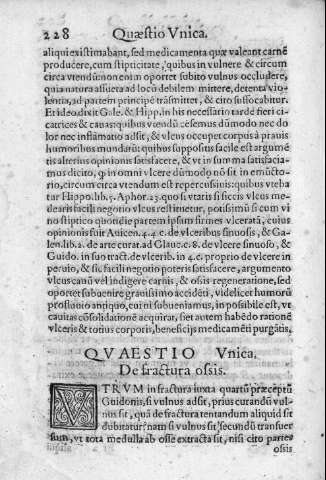 228 Quæstio Vnica.
aliqui existimabant, sed medicamenta quæ valeant carnē
producere, cum stipticitate, quibus in vulnere & circum
circa vtendū: non enim oportet subito vulnus occludere,
quia natura assueta ad locū debilem mittere, detenta vio-
lentia, ad partem principē trāsmittet, & cito suffocabitur.
Et ideo dixit Gale. & Hipp. in his necessario tardè fieri ci-
catrices & cauas: quibus vtendū censemus dūmodo nec do
lor nec inflāmatio adsit, & vlcus occupet corpus à prauis
humoribus mundatū: quibus suppositis facile est argumē
tis alterius opinionis satisfacere, & vt in summa satisfacia-
mus dicito, ꝙ in omni vlcere dūmodo nō sit in emūcto-
rio, circum circa vtendum est repercussiuis: quibus vteba
tur Hippo. lib. 5. Aphor. 23. quo si varis si siccis vlcus me-
dearis facili negotio vlcus restituetur, potissimū si cum vi
no stiptico quotidie partem ipsum firmes vlceratā, cuius
opinionis fuit Auicen. 4. 4. c. de vlceribus sinuosis, & Ga-
len. lib. 2. de arte curat. ad Glauc. c. 8. de vlcere sinuoso, &
Guido. in suo tract. de vlcerib. in 4. c. proprio de vlcere in
peruio, & sic facili negotio poteris satisfacere, argumento
vlcus cauū vel indigere carnis, & ossis regeneratione, sed
oportet subuenire grauissimo accidēti, videlicet humorū
profluuio antiquo, cui ni subueniamus, in possibile est, vt
cauitas cōsolidatione acquirat, siet autem habēdo rationē
vlceris & totius corporis, beneficijs medicamēti purgātis.
QVAESTIO Vnica.
De fractura ossis.
VTRVM in fractura iuxta quartū præceptū
Guidonis, si vulnus adsit, prius curandū vul-
nus sit, quā de fractura tentandum aliquid sit
dubitatur: nam si vulnus sit secundū transuer
sum, vt tota medulla ab osse extracta sit, nisi cito partes
ossis